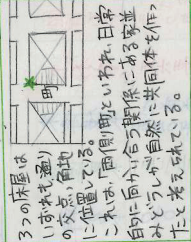 町
3つの床屋は
いずれも通り
の交点、角地
に位置している。
これは、「両側町」といわれ、日常
的に向かい合う関係にある家並
みどうしが、自然に共同体を作っ
たと考えられている。